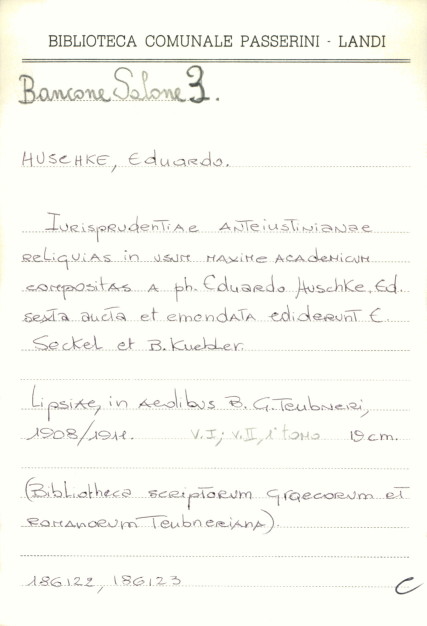 BIBLIOTECA COMUNALE PASSERINI - LANDI
Bancone Salone 3.
HUSCHKE, Eduardo.
Iurisprudentiae anteiustinianae
reliquias in usum maxime academicum
compositas a ph. Eduardo Huschke. Ed.
sexta aucta et emendata ediderunt E.
Seckel et B. Kuebler.
Lipsiae, in aedibus B. G. Teubneri,
1908/1911. V. I; V. II, 1° tomo 19 cm.
(Bibliotheca scriptorum graecorum et
romanorum Teubneriana).
186122, 186123
C